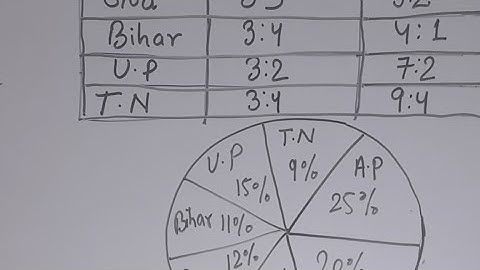 Bihar 3:4 4:1
U.P 3:2 7:2
T.N 3:4 9:4
T.N
9%
U.P
15%
A.P
25%
Bihar 11%
12%
20%